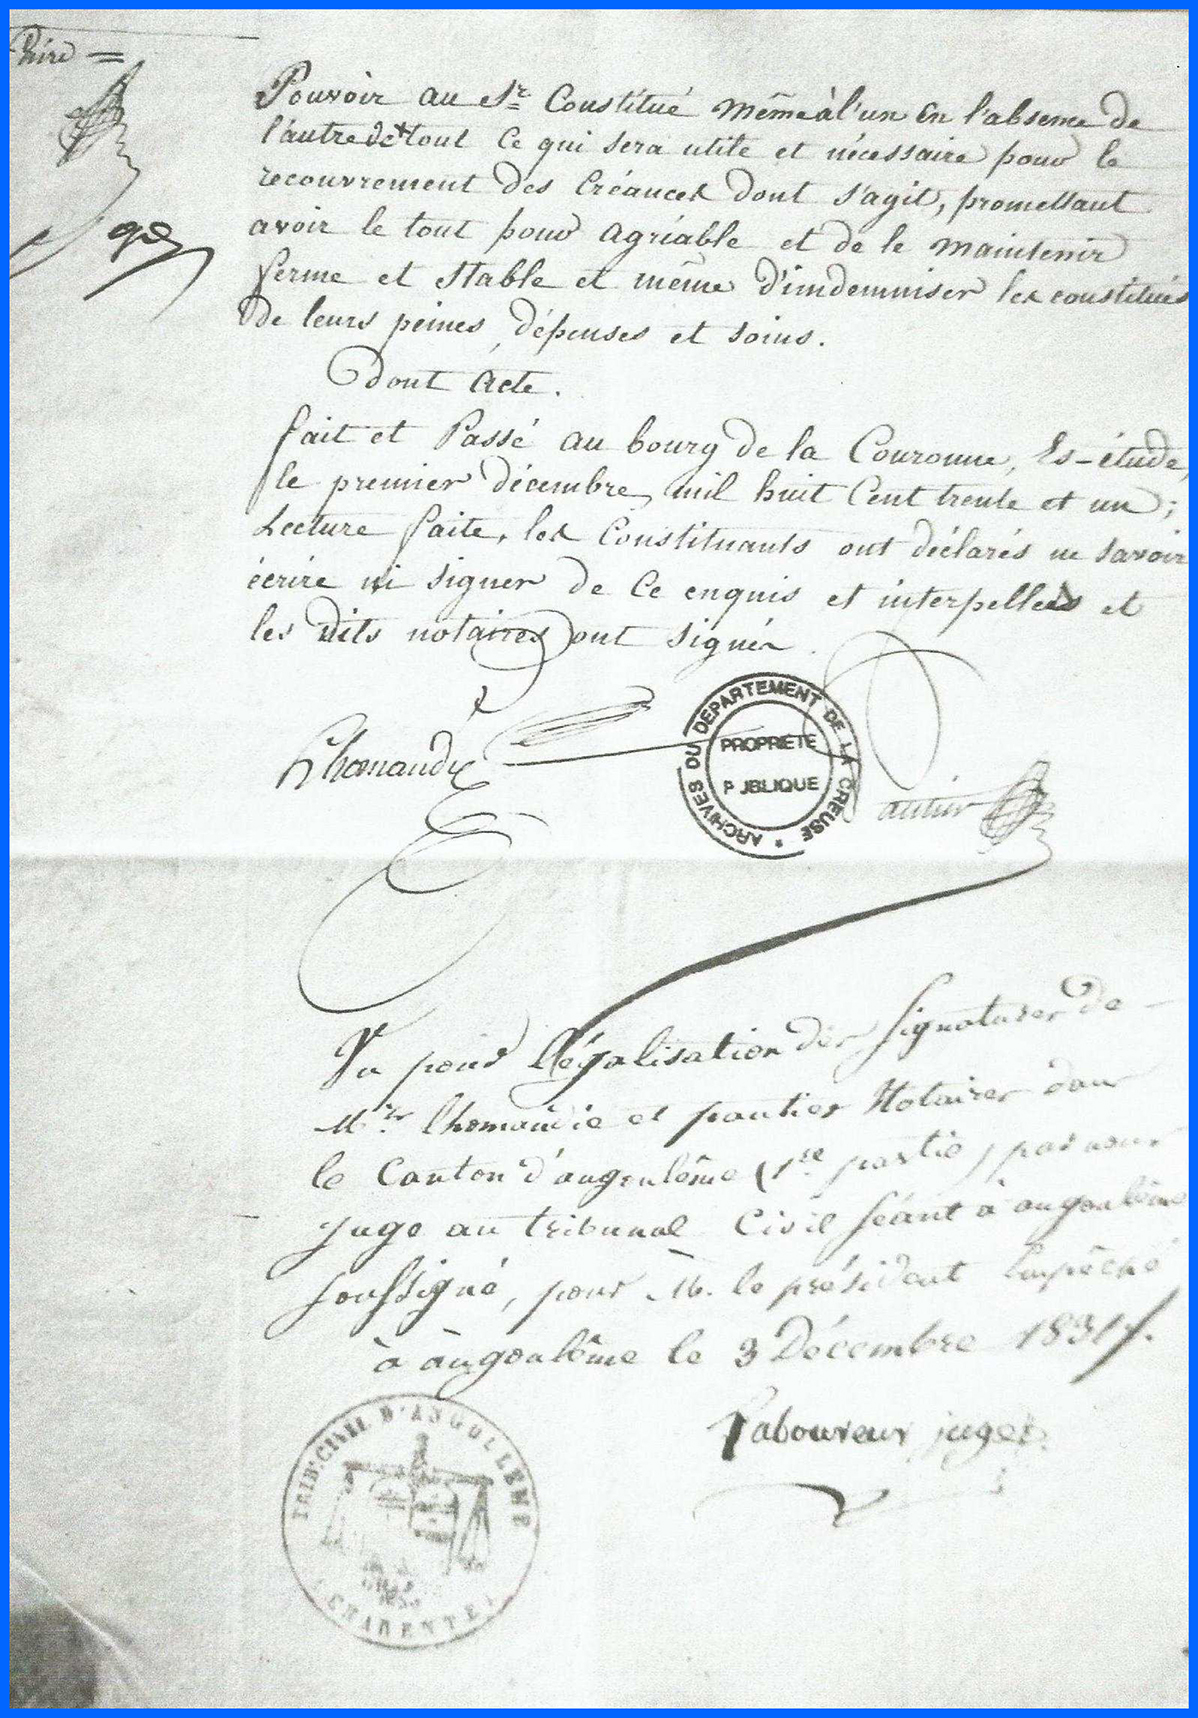 Pouvoir au Sr. Constitué même à l'un En l'absence de
l'autre de tout Ce qui sera utile et nécessaire pour le
recouvrement des Créances dont s'agit, promettant
avoir le tout pour Agréable et de le maintenir
ferme et stable et même d'indemniser les constitués
de leurs peines, dépenses et soins.
dont Acte.
fait et Passé au bourg de la Couronne, Es-étude,
le premier décembre, mil huit Cent trente et un ;
Lecture faite, les Constituants ont déclarés ne savoir
écrire ni signer de Ce enquis et interpellés et
les dits notaires ont signés.
Lhomandie
autier
ARCHIVES DU DEPARTEMENT DE LA CREUSE *
PROPRIETE
P JBLIQUE
Vu pour Légalisation des Signatures de
Mes. lhomandie et pautier Notaires dans
le Canton d'angoulême (1re partie) par nous
juge au tribunal Civil séant à angoulême
soussigné, pour M. le président Empêché
à angoulême le 3 Décembre 1831
Laboureur juge
TRIB. CIVIL D'ANGOULEME
CHARENTE